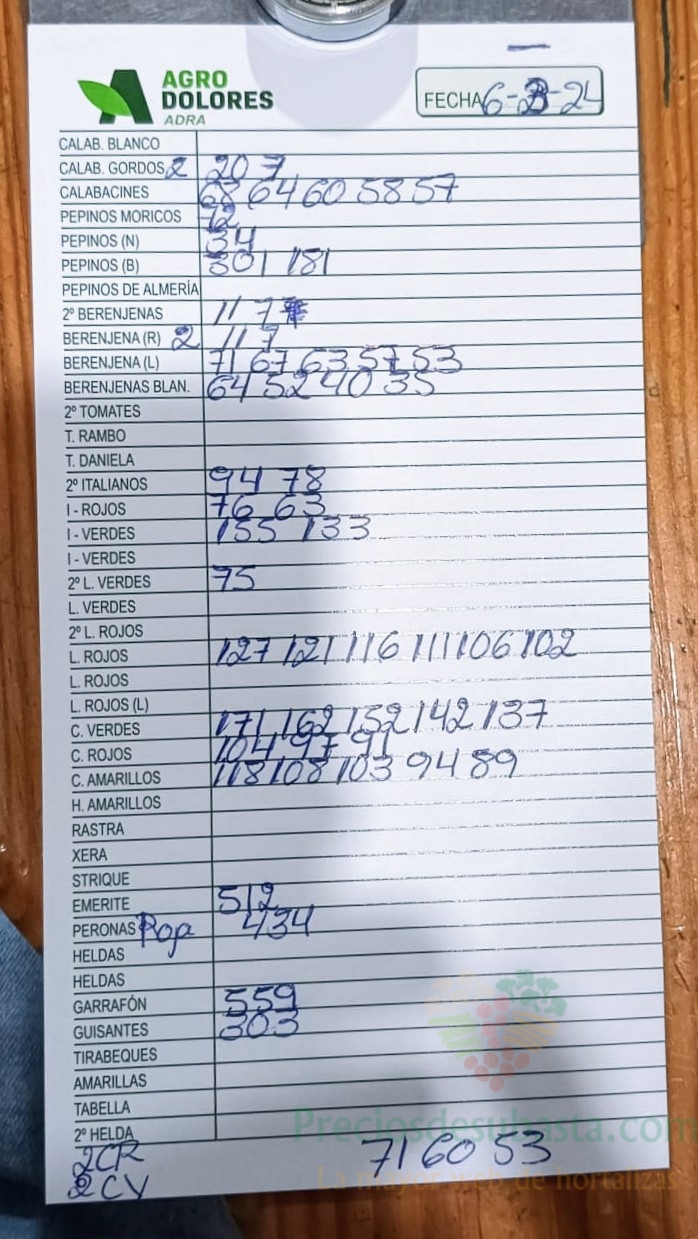 AGRO
DOLORES
ADRA
FECHA 6-3-24
CALAB. BLANCO
CALAB. GORDOS 2 20 7
CALABACINES 68 64 60 58 57
PEPINOS MORICOS 72
PEPINOS (N) 34
PEPINOS (B) 301 181
PEPINOS DE ALMERÍA
2º BERENJENAS 11 7
BERENJENA (R) 2 11 7
BERENJENA (L) 71 67 63 57 53
BERENJENAS BLAN. 64 52 40 35
2º TOMATES
T. RAMBO
T. DANIELA
2º ITALIANOS 94 78
I - ROJOS 76 63
I - VERDES 155 133
I - VERDES
2º L. VERDES 75
L. VERDES
2º L. ROJOS
L. ROJOS 127 121 116 111 106 102
L. ROJOS
L. ROJOS (L)
C. VERDES 171 162 152 142 137
C. ROJOS 104 97 91
C. AMARILLOS 118 108 103 94 89
H. AMARILLOS
RASTRA
XERA
STRIQUE
EMERITE 512
PERONAS Roja 434
HELDAS
HELDAS
GARRAFÓN 559
GUISANTES 303
TIRABEQUES
AMARILLAS
TABELLA
2º HELDA
2CR 71 60 53
2CV
Preciosdesubasta.com
La mayor web de hortalizas